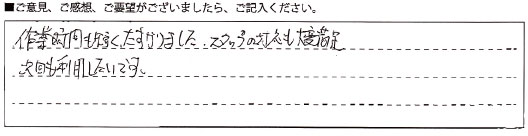 ■ご意見、ご感想、ご要望がございましたら、ご記入ください。
作業時間も短くたすかりました。スタッフの対応も大変満足
次回も利用したいです。